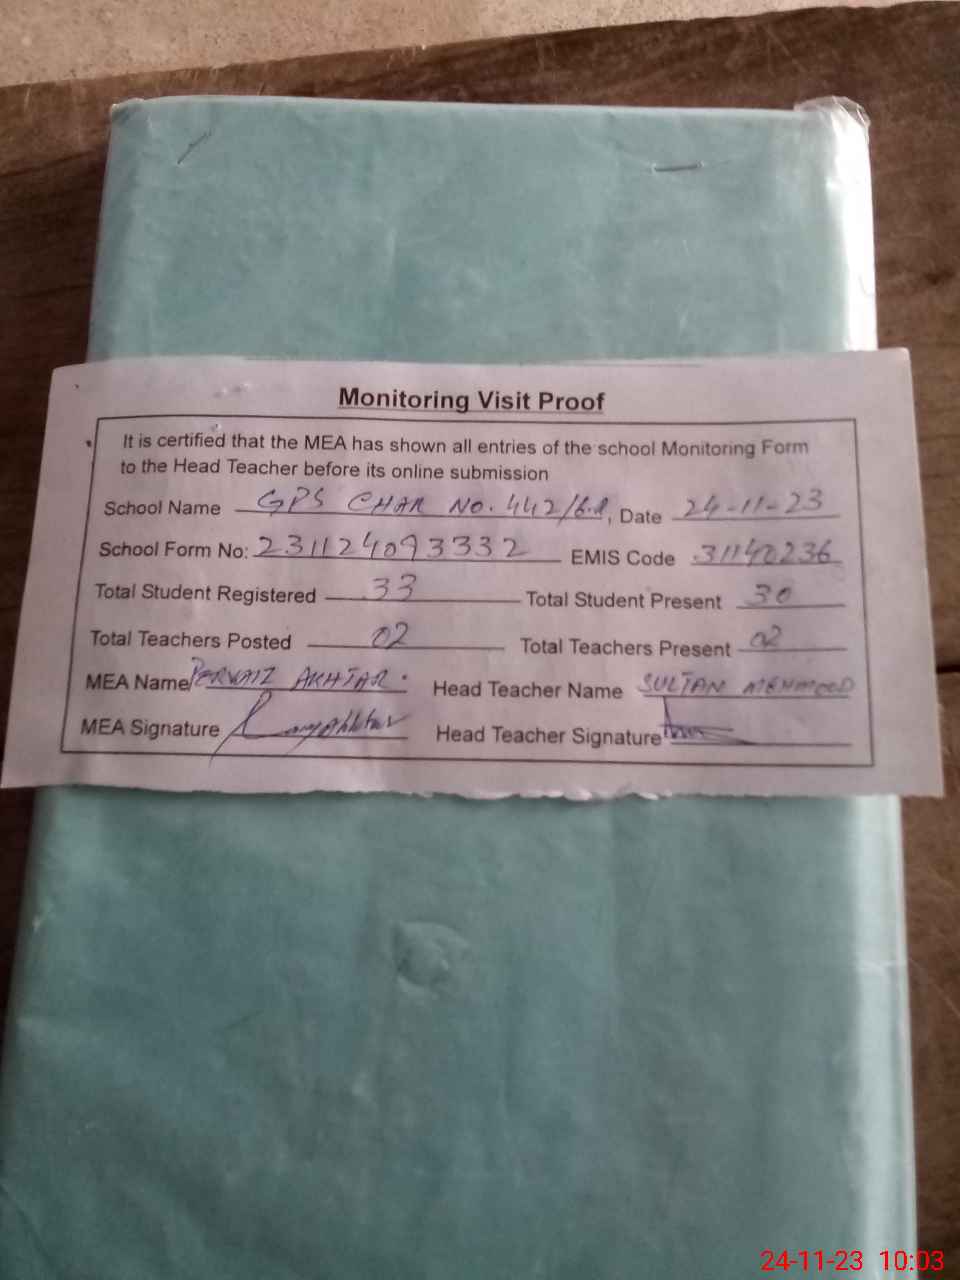 Monitoring Visit Proof
It is certified that the MEA has shown all entries of the school Monitoring Form
to the Head Teacher before its online submission
School Name GPS CHAK NO. 442/6.R, Date 24-11-23
School Form No: 231124093332 EMIS Code 31140236
Total Student Registered 33 Total Student Present 30
Total Teachers Posted 02 Total Teachers Present 02
MEA Name PERVAIZ AKHTAR. Head Teacher Name SULTAN MEHMOOD
MEA Signature Head Teacher Signature
24-11-23 10:03